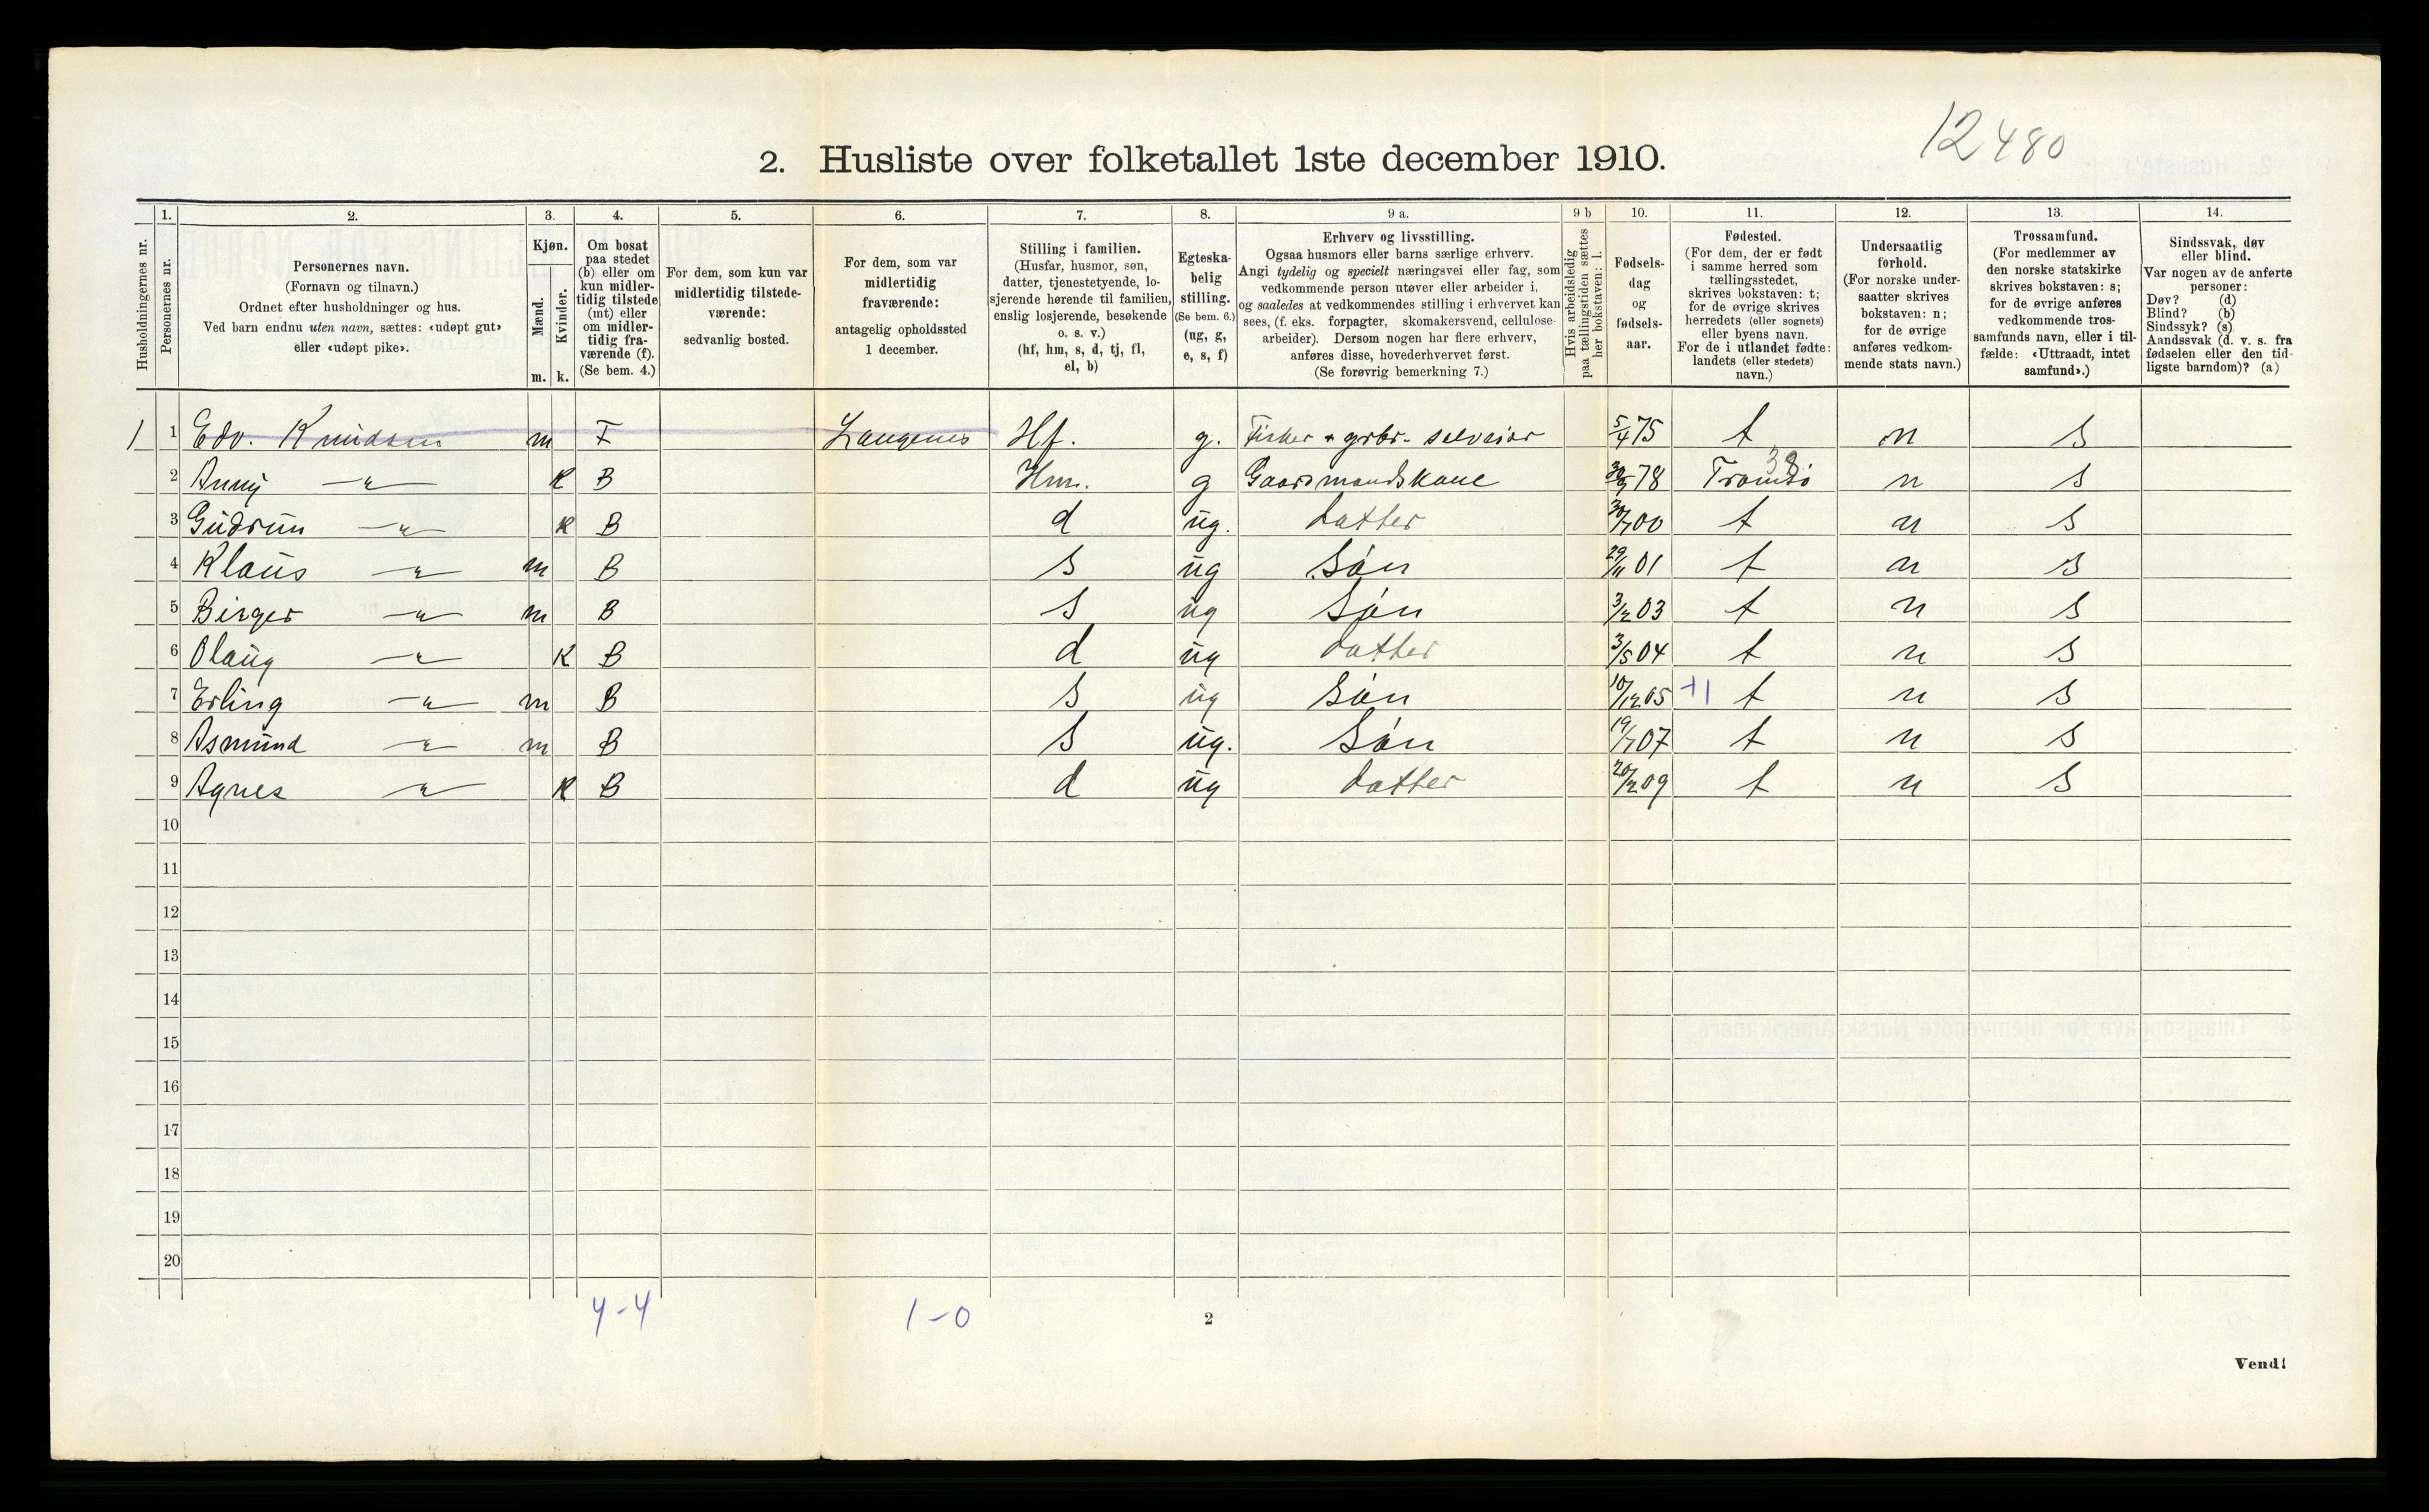 12480
2. Husliste over folketallet 1ste december 1910.
Husholdningernes nr.
1. Personernes nr.
2. Personernes navn.
(Fornavn og tilnavn.)
Ordnet efter husholdninger og hus.
Ved barn endnu uten navn, sættes: «udøpt gut»
eller «udøpt pike».
3. Kjøn.
Mænd. m.
Kvinder. k.
4. Om bosat
paa stedet
(b) eller om
kun midler-
tidig tilstede
(mt) eller
om midler-
tidig fra-
værende (f).
(Se bem. 4.)
5. For dem, som kun var
midlertidig tilstede-
værende:
sedvanlig bosted.
6. For dem, som var
midlertidig
fraværende:
antagelig opholdssted
1 december.
7. Stilling i familien.
(Husfar, husmor, søn,
datter, tjenestetyende, lo-
sjerende hørende til familien,
enslig losjerende, besøkende
o. s. v.)
(hf, hm, s, d, tj, fl,
el, b)
8. Egteska-
belig
stilling.
(Se bem. 6.)
(ug, g,
e, s, f)
9 a. Erhverv og livsstilling.
Ogsaa husmors eller barns særlige erhverv.
Angi tydelig og specielt næringsvei eller fag, som
vedkommende person utøver eller arbeider i,
og saaledes at vedkommendes stilling i erhvervet kan
sees, (f. eks. forpagter, skomakersvend, cellulose-
arbeider). Dersom nogen har flere erhverv,
anføres disse, hovederhvervet først.
(Se forøvrig bemerkning 7.)
9 b Hvis arbeidsledig
paa tællingstiden sættes
her bokstaven: l.
10. Fødsels-
dag
og
fødsels-
aar.
11. Fødested.
(For dem, der er født
i samme herred som
tællingsstedet,
skrives bokstaven: t;
for de øvrige skrives
herredets (eller sognets)
eller byens navn.
For de i utlandet fødte:
landets (eller stedets)
navn.)
12. Undersaatlig
forhold.
(For norske under-
saatter skrives
bokstaven: n;
for de øvrige
anføres vedkom-
mende stats navn.)
13. Trossamfund.
(For medlemmer av
den norske statskirke
skrives bokstaven: s;
for de øvrige anføres
vedkommende tros-
samfunds navn, eller i til-
fælde: «Uttraadt, intet
samfund».)
14. Sindssvak, døv
eller blind.
Var nogen av de anførte
personer:
Døv? (d)
Blind? (b)
Sindssyk? (s)
Aandssvak (d. v. s. fra
fødselen eller den tid-
ligste barndom)? (a)
1 1 Edv. Knudsen m F Langenes Hf. g. Fisker + grbr. selveier 5/4 75 t n s
2 Anny —"— K B Hm. g Gaardmandskone 78 Tromsö 38 n s
3 Gudrun —"— K B d ug. datter 00 t n s
4 Klaus —"— m B s ug Sön 29/11 01 t n s
5 Birger —"— m B s ug Sön 3/2 03 t n s
6 Olaug —"— K B d ug datter 3/5 04 t n s
7 Erling —"— m B s ug Sön 10/12 05 +1 t n s
8 Asmund —"— m B s ug. Sön 19/7 07 t n s
9 Agnes —"— K B d ug datter 20/2 09 t n s
10
11
12
13
14
15
16
17
18
19
20
4-4 1-0
2
Vend!